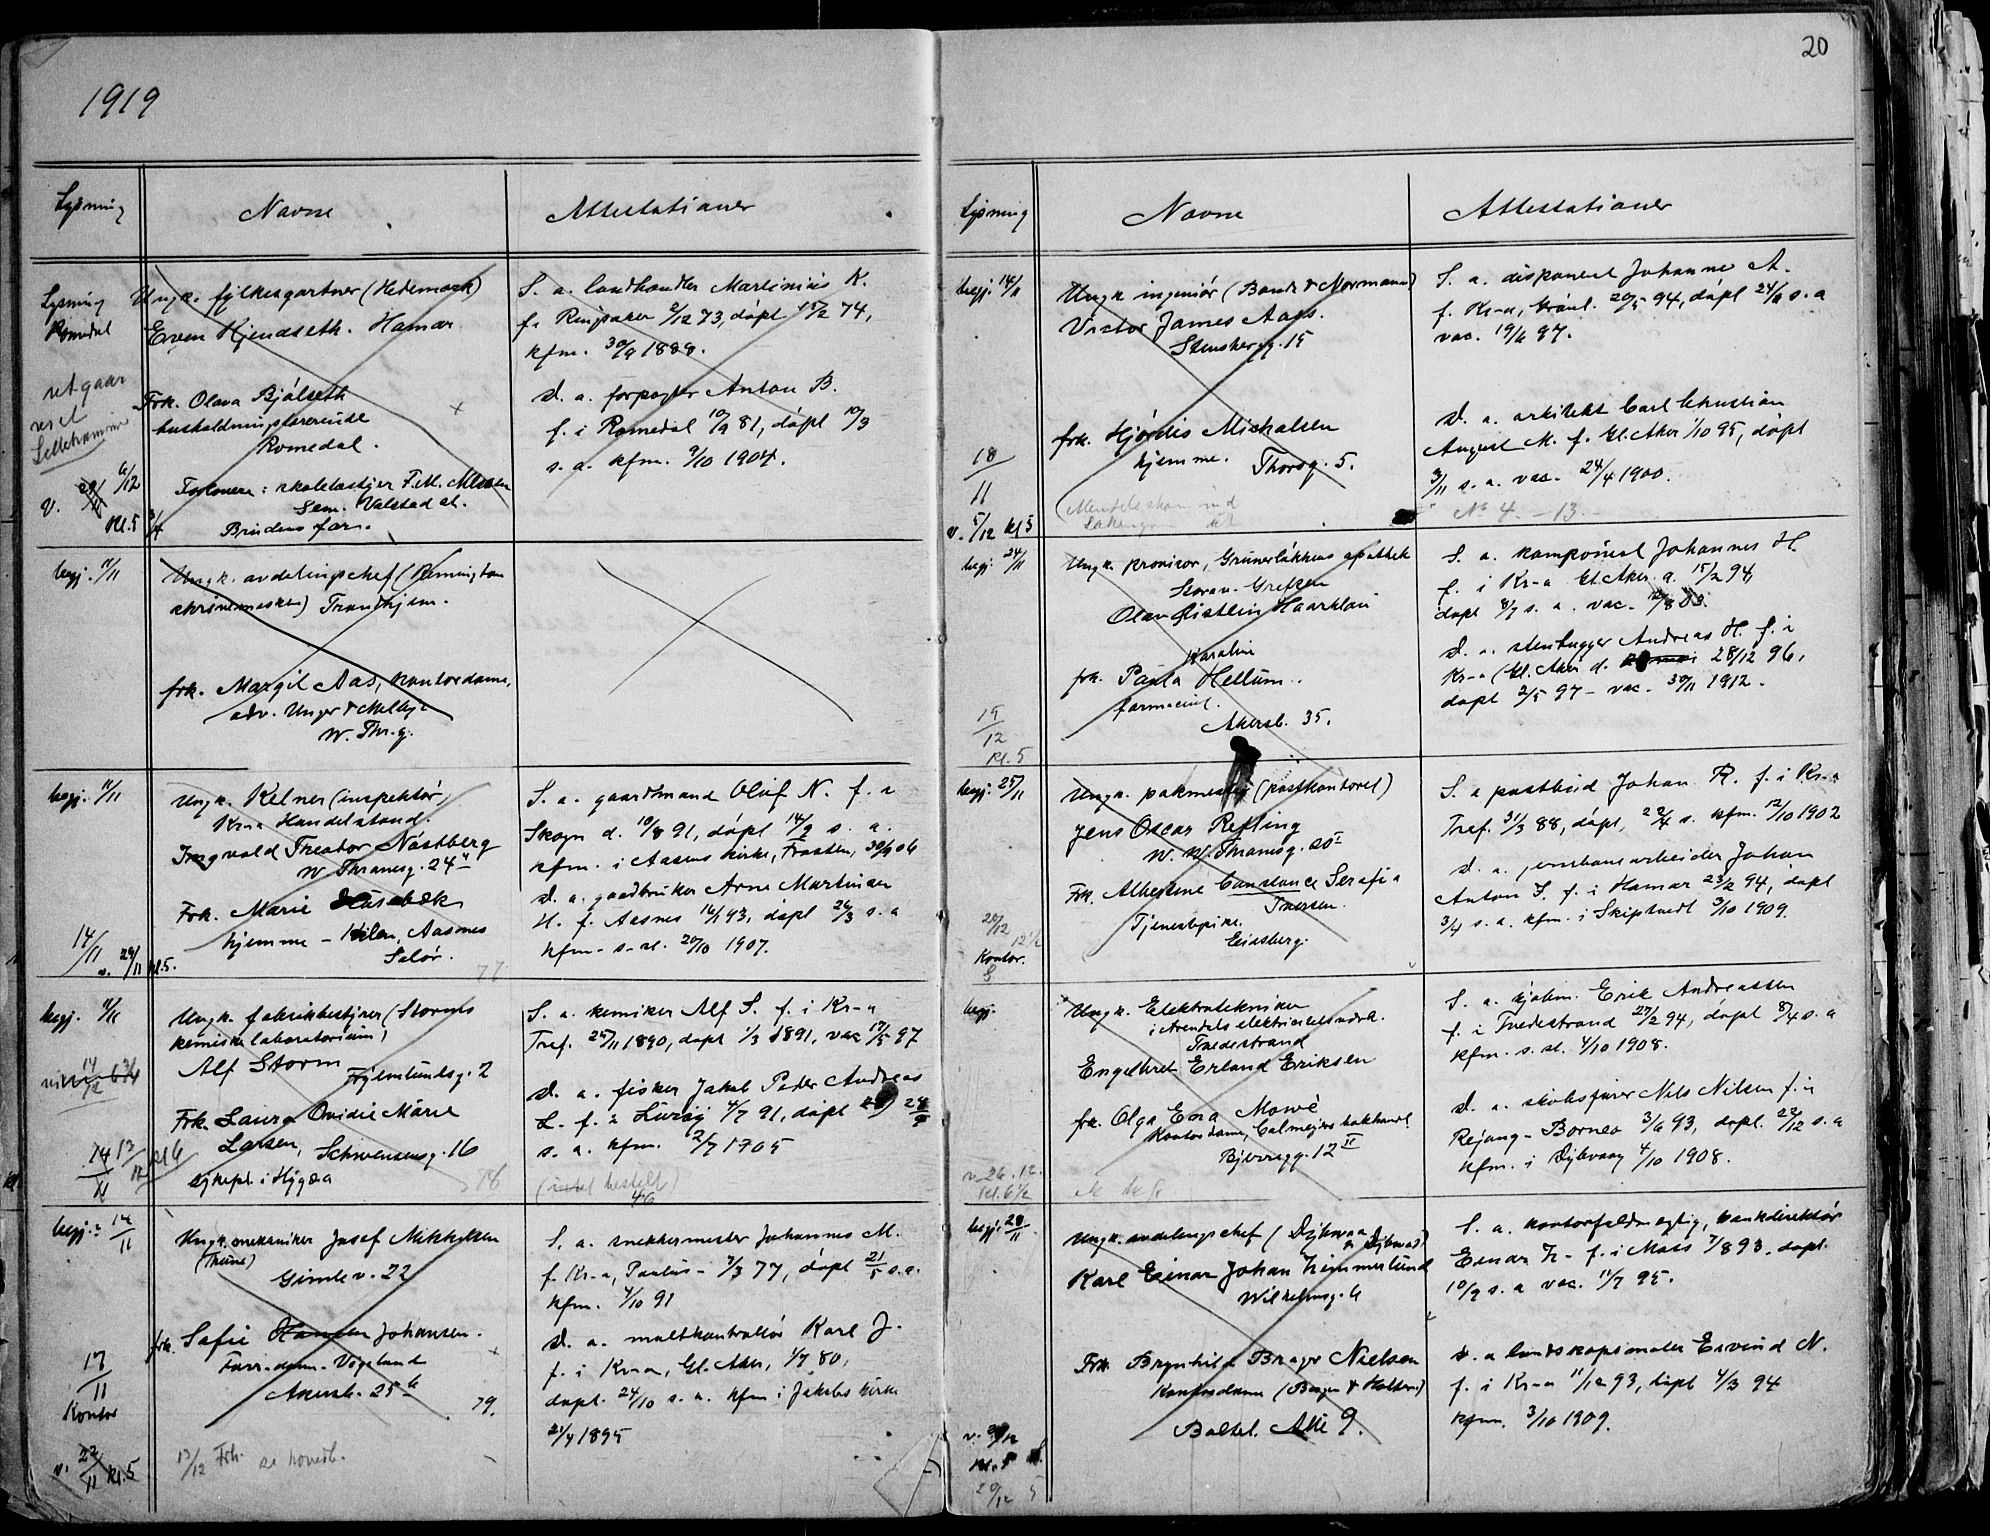 1919
Lysning
Navne
Attestationer
Lysning
Romedal
utgaar
Ungk. fylkesgartner (Hedemark)
Even Kjendseth. Hamar
Frk. Olava Bjølseth
husholdningslærerinde
Romedal.
Forlovere: skolebestyrer
Sem. Valstad st.
Brudens far.
V. 6/12
Kl. 5
S. a. landhandler Martinius K.
f. Ringsaker 2/12 73, døpt 15/2 74,
kfm. 30/9 1888.
D. a. forpagter Anton B.
f. i Romedal 10/9 81, døpt 10/9
s. a. kfm. 9/10 1904.
begj. 11/11
Ungk. avdelingschef (Remington
skrivemaskin) Trondhjem.
frk. Margit Aas, kontordame,
adv. Unger &
W. Thr. g.
begj. 11/11
Ungk. Kelner (inspektør,
Kr-a Handelsstand.
Ingvald Theodor Nøstberg
W Thranesg. 24
Frk. Marie Husebæk
hjemme - Kilen, Aasnes
Solør.
77
14/11
v. 29/11 kl. 5.
S. a. gaardmand Oluf N. f. i
Skogn d. 10/8 91, døpt 14/9 s. a.
kfm. i Aasens kirke, Frosten, 30/9 06
D. a. gaardbruker Arne Martinsen
H. f. Aasnes 14/1 93, døpt 26/3 s. a
kfm. s. st. 20/10 1907.
begj. 11/11
Ungk. fabrikbestyrer (Storms
kemiske laboratorium)
Alf Storm
Hjelmlundsg. 2
Frk. Laura Ovidie Marie
Larsen, Schwensensg. 16
sykepl. i Hygæa
78
14/11
13/12 kl 6
S. a. kemiker Alf S. f. i Kr-a
Tref. 25/11 1890, døpt 1/3 1891, vac 17/5 97
D. a. fisker Jakob Peder Andreas
L. f. i Hurøy 4/7 91, døpt 24/9
s. a. kfm. 2/7 1905
46
begj.: 14/11
Ungk. mekaniker Josef Mikkelsen
(Thune)
Gimle v. 22
frk. Sofie Hansen Johansen.
Vøgeland
Akersb. 25 b
79.
17/11
Kontor
v. 22/11 kl. 5
13/12 Frk.
S. a. snekkermester Johannes M.
f. Kr-a, Paulus - 3/3 77, døpt 21/5 s. a.
kfm. 4/10 91
D. a. maltkontrollør Karl J.
f. i Kr-a, Gl. Aker, 1/7 80,
døpt. 24/10 s. a. kfm i Jakobs kirke
21/4 1895
20
Lysning
Navne
Attestationer
begj. 14/11
Ungk. ingeniør (Bonde & Normann)
Victor James Aass.
Stensbergg. 15
frk. Hjørdis Michalsen
hjemme. Thorsg. 5.
18/11
v. 5/12 kl 5
S. a. disponent Johannes A.
f. Kr-a, Grønl. 20/5 94, døpt 24/9 s. a
vac. 19/6 97.
D. a. arkitekt Carl Christian
August M. f. Gl. Aker 1/10 95, døpt
3/11 s. a. vac. 24/4 1900.
No 4. - 13.
begj. 24/11
Ungk. provisor, Grünerløkkens apothek
Storou. Grefsen
Olav Østlin Haarklau
Karoline
frk. Paula Hellum.
farmaceut.
Akersb. 35.
19/12
kl. 5
S. a. komponist Johannes H.
f. i Kr-a Gl. Aker. d. 15/2 94,
døpt 8/7 s. a. vac.
D. a. stenhugger Andreas H. f. i
Kr-a (Gl. Aker d. 28/12 96,
døpt 2/5 97 - vac. 30/11 1912.
begj. 25/11
Ungk. pakmester (postkontoret)
Jens Oscar Refling
W. W. Thranesg. 20 I
Frk. Albertine Constance Serafia
Iversen.
Tjenestepike.
Eidsberg.
20/12 12½
Kontor.
S. a postbud Johan R. f. i Kr-a
Tref. 31/3 88, døpt, 22/4 s. kfm. 12/10 1902
D. a. jernbanearbeider Johan
Anton I. f. i Hamar 23/2 94, døpt
3/4 s. a. kfm. i Skiptvedt 3/10 1909.
begj.
Ungk. Elektrotekniker
i Arendals elektricitetsverk.
Tvedestrand
Engelbret Erland Eriksen
frk. Olga Eva Mowé
Kontordame, Calmeyers bokhandel
Bjerregg. 12 II
v. 26.12.
kl. 6½
S. a. hjulm. Erik Andreassen
f. i Tvedestrand 27/2 94, døpt 8/4 s. a
kfm. s. st. 4/10 1908.
D. a. skibsfører Nils Nilsen f. i
Rejang - Borneo 3/6 93, døpt. 24/12 s. a
kfm. i Dybvaag 4/10 1908.
begj. 28/11
Ungk. avdelingschef (Dybwad & Dybwad)
Karl Einar Johan Zimmerlund
Wilhelmsg. 6
Frk. Brynhild Brager Nielsen
Kontordame (Berger & Holtern)
Boltel. Allé 9.
Kl. 5
20/12 5
S. a. kontorfuldmegtig, bankdirektør
Einar Z. f. i Moss 7/8 93, døpt.
10/9 s. a vac. 11/7 95.
D. a landskapsmaler Eivind N.
f. i Kr-a 11/12 93, døpt 4/3 94
kfm. 3/10 1909.